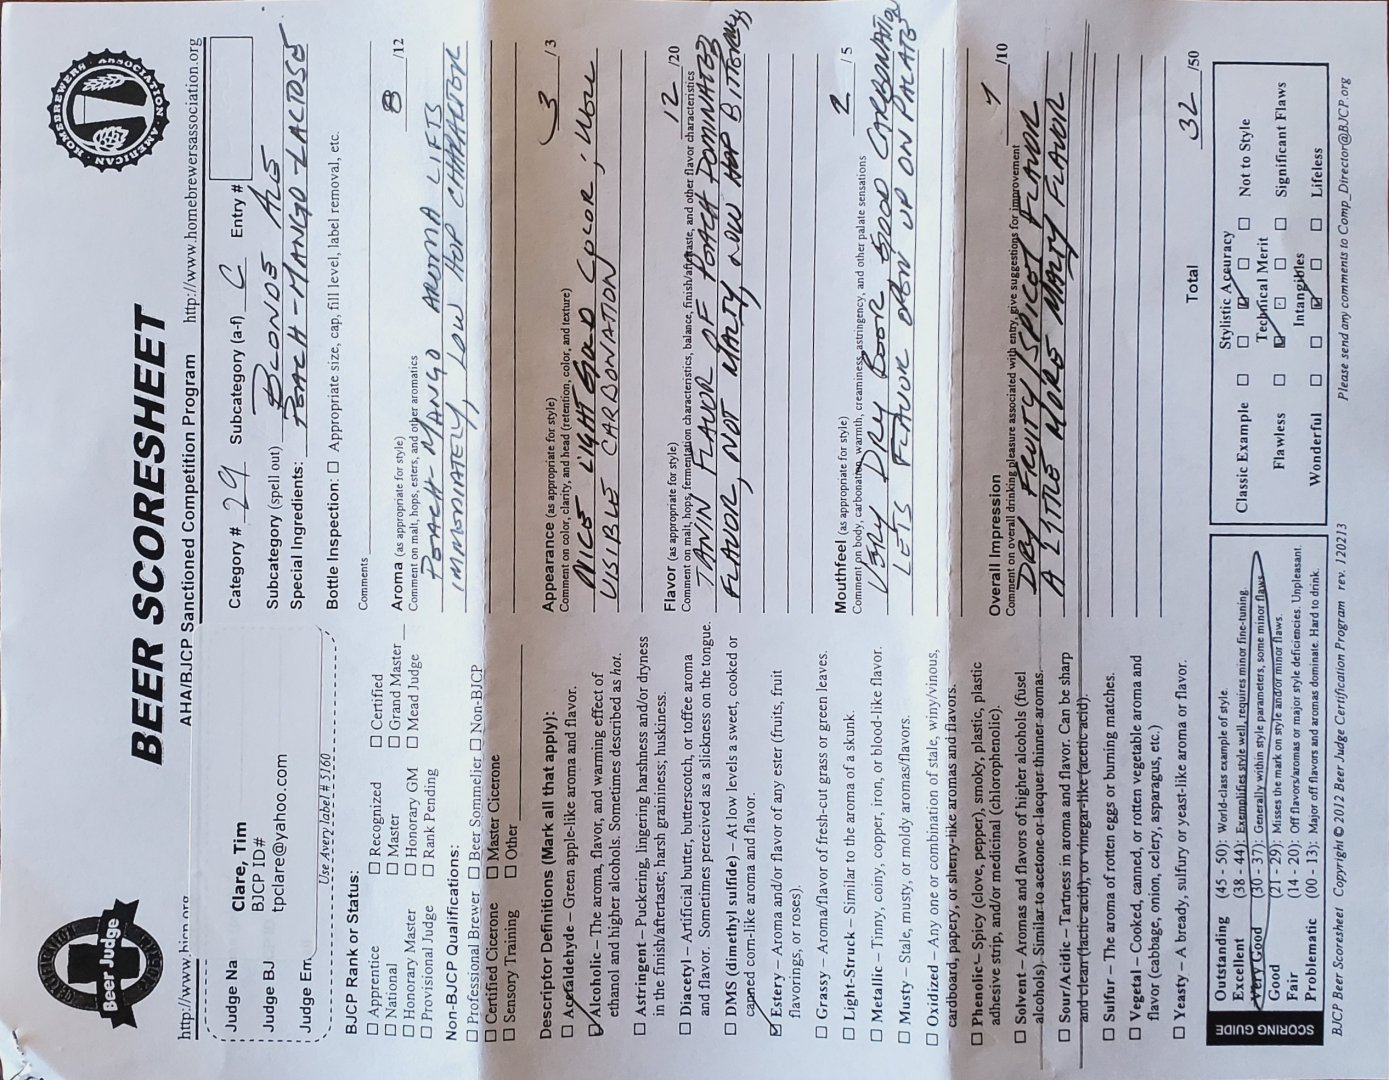 BEER SCORESHEET
AHA/BJCP Sanctioned Competition Program
http://www.bjcp.org
http://www.homebrewersassociation.org
Beer Judge
AMERICAN HOMEBREWERS ASSOCIATION
Judge Na
Judge BJ
Judge Em
Clare, Tim
BJCP ID#
tpclare@yahoo.com
Use Avery label # 5160
BJCP Rank or Status:
☐ Apprentice ☐ Recognized ☐ Certified
☐ National ☐ Master ☐ Grand Master
☐ Honorary Master ☐ Honorary GM ☐ Mead Judge
☐ Provisional Judge ☐ Rank Pending
Non-BJCP Qualifications:
☐ Professional Brewer ☐ Beer Sommelier ☐ Non-BJCP
☐ Certified Cicerone ☐ Master Cicerone
☐ Sensory Training ☐ Other
Descriptor Definitions (Mark all that apply):
☐ Acetaldehyde – Green apple-like aroma and flavor.
☑ Alcoholic – The aroma, flavor, and warming effect of
ethanol and higher alcohols. Sometimes described as hot.
☐ Astringent – Puckering, lingering harshness and/or dryness
in the finish/aftertaste; harsh graininess; huskiness.
☐ Diacetyl – Artificial butter, butterscotch, or toffee aroma
and flavor. Sometimes perceived as a slickness on the tongue.
☐ DMS (dimethyl sulfide) – At low levels a sweet, cooked or
canned corn-like aroma and flavor.
☑ Estery – Aroma and/or flavor of any ester (fruits, fruit
flavorings, or roses).
☐ Grassy – Aroma/flavor of fresh-cut grass or green leaves.
☐ Light-Struck – Similar to the aroma of a skunk.
☐ Metallic – Tinny, coiny, copper, iron, or blood-like flavor.
☐ Musty – Stale, musty, or moldy aromas/flavors.
☐ Oxidized – Any one or combination of stale, winy/vinous,
cardboard, papery, or sherry-like aromas and flavors.
☐ Phenolic – Spicy (clove, pepper), smoky, plastic, plastic
adhesive strip, and/or medicinal (chlorophenolic).
☐ Solvent – Aromas and flavors of higher alcohols (fusel
alcohols). Similar to acetone or lacquer thinner aromas.
☐ Sour/Acidic – Tartness in aroma and flavor. Can be sharp
and clean (lactic acid), or vinegar-like (acetic acid).
☐ Sulfur – The aroma of rotten eggs or burning matches.
☐ Vegetal – Cooked, canned, or rotten vegetable aroma and
flavor (cabbage, onion, celery, asparagus, etc.)
☐ Yeasty – A bready, sulfury or yeast-like aroma or flavor.
SCORING GUIDE
Outstanding (45 - 50): World-class example of style.
Excellent (38 - 44): Exemplifies style well, requires minor fine-tuning.
Very Good (30 - 37): Generally within style parameters, some minor flaws.
Good (21 - 29): Misses the mark on style and/or minor flaws.
Fair (14 - 20): Off flavors/aromas or major style deficiencies. Unpleasant.
Problematic (00 - 13): Major off flavors and aromas dominate. Hard to drink.
Category # 29 Subcategory (a-f) C Entry #
Subcategory (spell out) BLONDE ALE
Special Ingredients: PEACH-MANGO-LACTOSE
Bottle Inspection: ☐ Appropriate size, cap, fill level, label removal, etc.
Comments
Aroma (as appropriate for style) 8 /12
Comment on malt, hops, esters, and other aromatics
PEACH-MANGO AROMA LIFTS
IMMEDIATELY, LOW HOP CHARACTER
Appearance (as appropriate for style) 3 /3
Comment on color, clarity, and head (retention, color, and texture)
NICE LIGHT GOLD COLOR,
VISIBLE CARBONATION
Flavor (as appropriate for style) 12 /20
Comment on malt, hops, fermentation characteristics, balance, finish/aftertaste, and other flavor characteristics
FLAVOR OF PEACH DOMINATES
FLAVOR, NOT MALTY, LOW HOP BITTERNESS
Mouthfeel (as appropriate for style) 2 /5
Comment on body, carbonation, warmth, creaminess, astringency, and other palate sensations
VERY DRY GOOD CARBONATION
LETS FLAVOR OPEN UP ON PALATE
Overall Impression 7 /10
Comment on overall drinking pleasure associated with entry, give suggestions for improvement
DRY FRUITY/SPICEY FLAVOR
A LITTLE MORE MALTY FLAVOR
Total 32 /50
Stylistic Accuracy
Classic Example ☐ ☐ ☑ ☐ ☐ Not to Style
Technical Merit
Flawless ☐ ☑ ☐ ☐ ☐ Significant Flaws
Intangibles
Wonderful ☐ ☐ ☑ ☐ ☐ Lifeless
BJCP Beer Scoresheet Copyright © 2012 Beer Judge Certification Program rev. 120213 Please send any comments to Comp_Director@BJCP.org